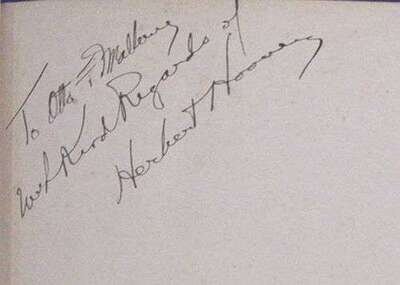 To Otto F. Mallery
With Kind Regards of
Herbert Hoover